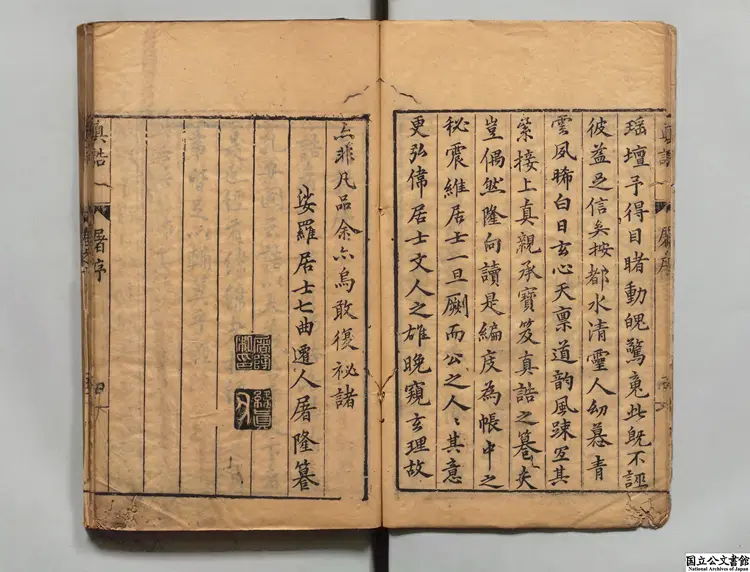 瑶壇予得目睹動魄驚䰟此既不誣
彼益足信矣按都水清靈人幼慕青
雲夙晞白日玄心天禀道韵風踈宐其
縈接上真親承寳笈真誥之纂夫
豈偶然隆向讀是編庋為帳中之
秘震維居士一旦劂而公之人〻其意
更弘偉居士文人之雄晚窺玄理故
亦非凡品余亦烏敢復祕諸
娑羅居士七曲遷人屠隆纂
真誥
屠序
国立公文書館
National Archives of Japan